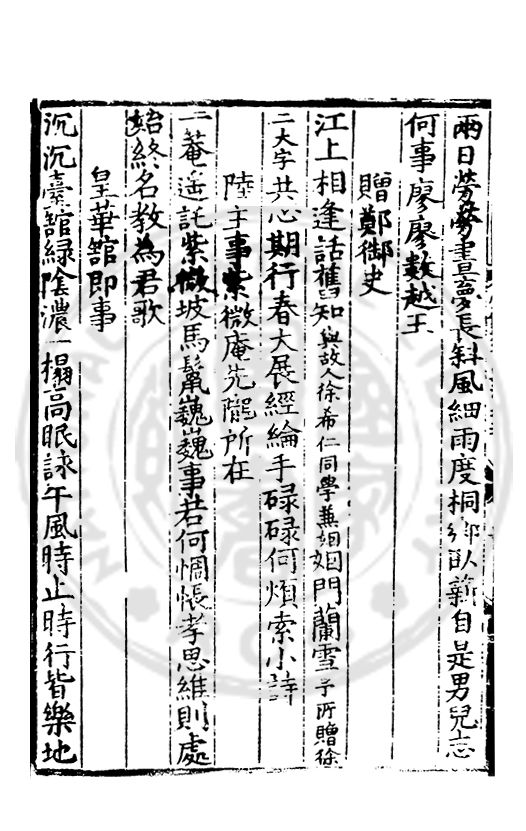 兩日勞勞晝夢長斜風細雨度桐鄉臥薪自是男兒志
何事廖廖數越王
贈鄭御史
江上相逢話舊知與故人徐希仁同學兼姻姻門蘭雪予所贈徐
二大字共心期行春大展經綸手碌碌何煩索小詩
陸主事紫微庵先隴所在
一菴遥託紫微坡馬鬛巍巍事若何惆悵孝思維則處
始終名教為君歌
皇華舘即事
沉沉臺舘綠陰濃一榻高眠詠午風時止時行皆樂地